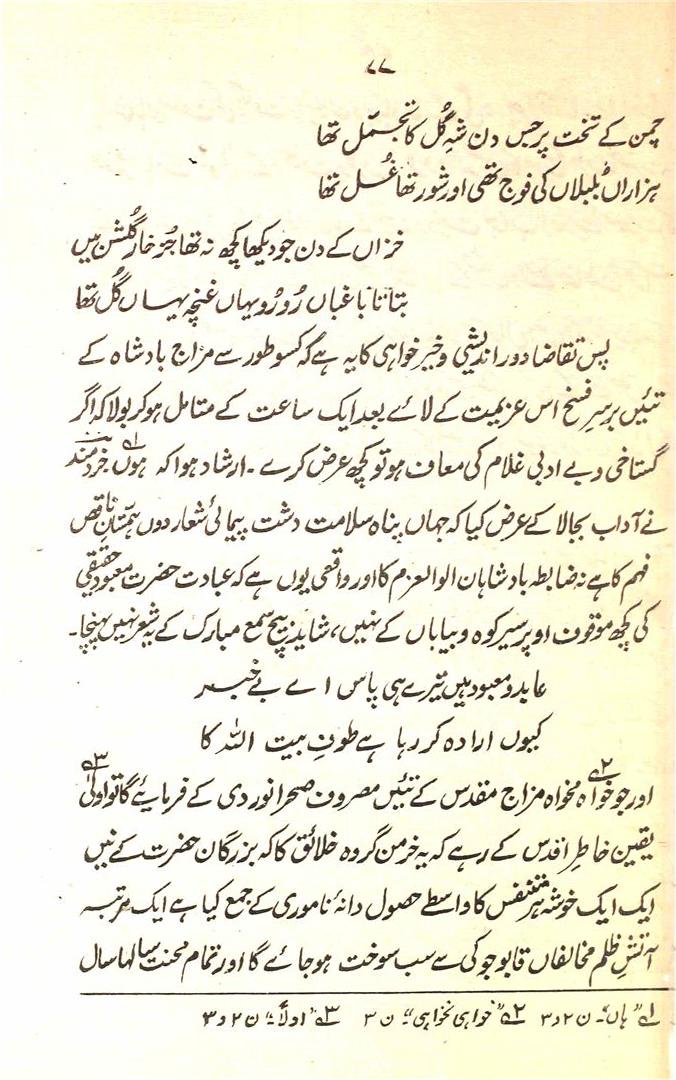 ۷۷
چمن کے تخت پر جس دن شہِ گُل کا تجمّل تھا
ہزاراں بُلبلاں کی فوج تھی اور شور تھا غُل تھا
خزاں کے دن جو دیکھا کچھ نہ تھا جُز خار گُلشن میں
بتاتا باغباں رُو رُو یہاں غنچہ یہاں گُل تھا
پس تقاضا دور اندیشی و خیر خواہی کا یہ ہے کہ کسو طور سے مزاج بادشاہ کے
تئیں بر سرِ فسخ اس عزیمت کے لائے بعد ایک ساعت کے متامل ہو کر بولا کہ اگر
گستاخی و بے ادبی غلام کی معاف ہو تو کچھ عرض کرے۔ ارشاد ہوا کہ ہوں۱ خردمند
نے آداب بجا لا کے عرض کیا کہ جہاں پناہ سلامت دشت پیمائی شعار دوں ہمتان ناقص
فہم کا ہے نہ ضابطہ بادشاہان الوالعزم کا اور واقعی یوں ہے کہ عبادت حضرت معبود حقیقی
کی کچھ موقوف اوپر سیر کوہ و بیاباں کے نہیں، شاید بیچ سمع مبارک کے یہ شعر نہیں پہنچا۔
عابد و معبود ہیں تیرے ہی پاس اے بے خبر
کیوں ارادہ کر رہا ہے طوفِ بیت اللہ کا
اور جو خواہ۲ مخواہ مزاج مقدس کے تئیں مصروف صحرا نوردی کے فرمایئے گا تو اولیٰ۳
یقین خاطرِ اقدس کے رہے کہ یہ خرمن گروہ خلائق کا کہ بزرگان حضرت کے نیں
ایک ایک خوشہ ہر متنفس کا واسطے حصول دانۂ ناموری کے جمع کیا ہے ایک مرتبہ
آتشِ ظلم مخالفاں قابو جو کی سے سب سوخت ہو جائے گا اور تمام محنت سالہا سال
۱؎ "ہاں"۔ ن ۲ و ۳ ۲؎ "خواہی نخواہی"۔ ن ۳ ۳؎ "اولاً"۔ ن ۲ و ۳